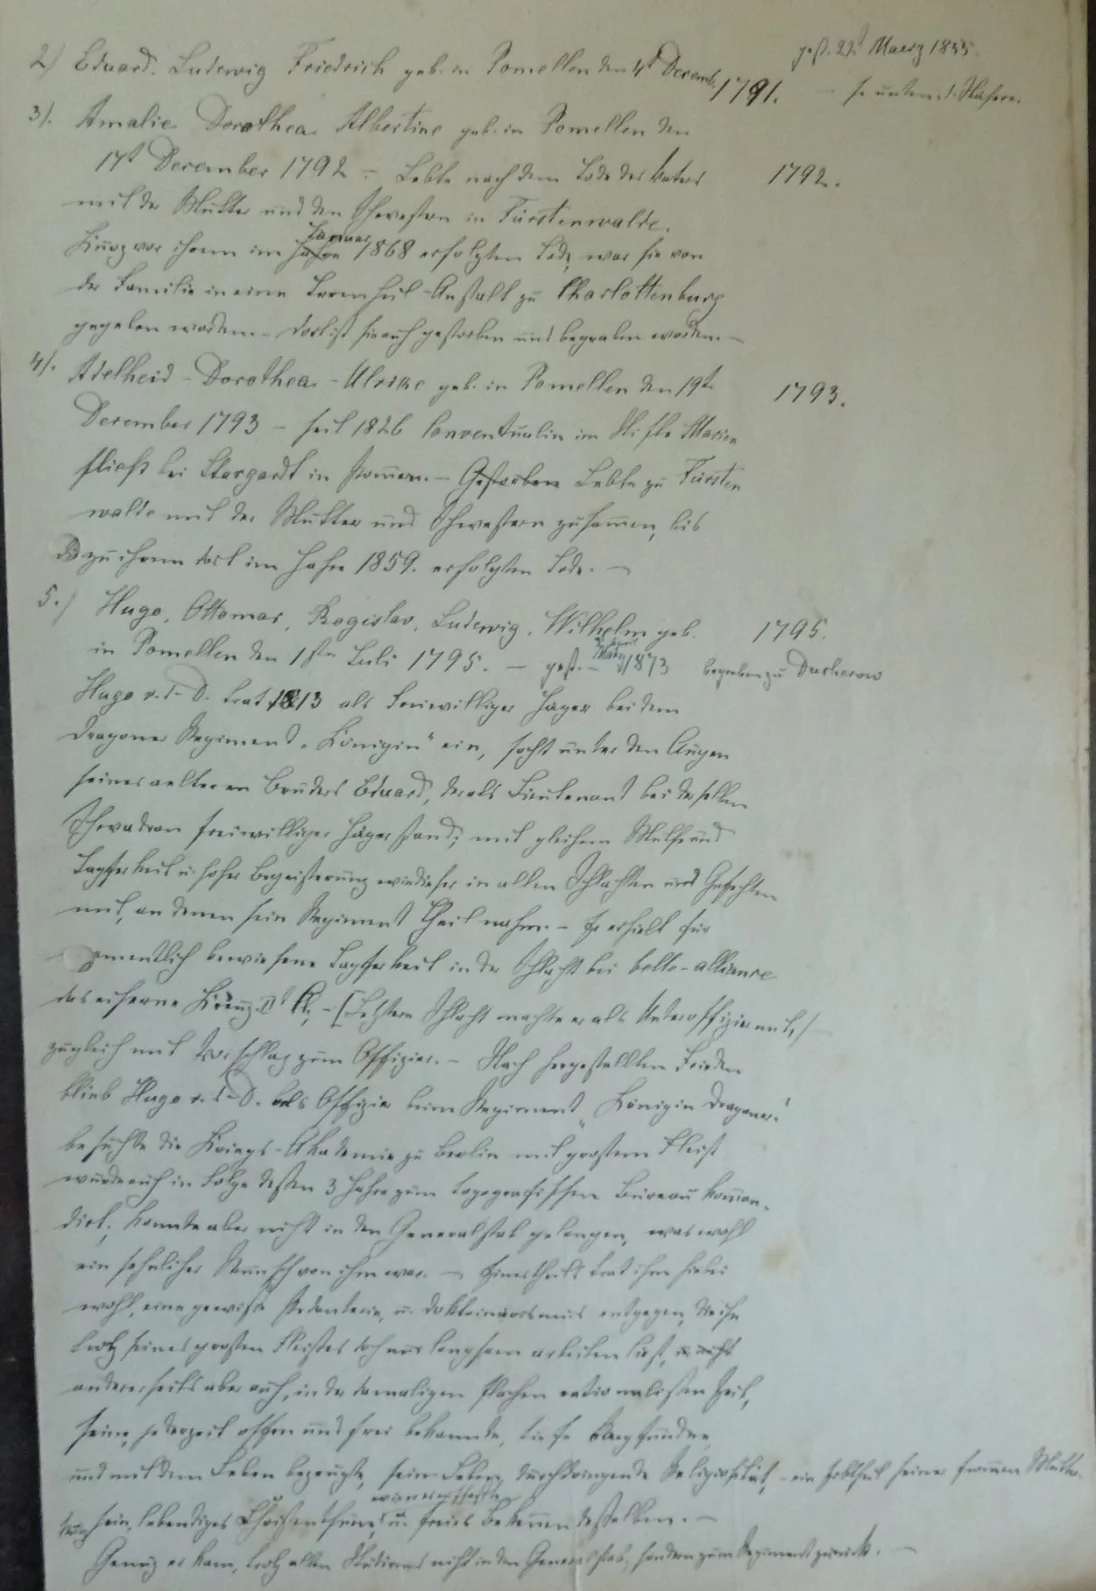 gest. 22t Maerz 1855.
2) Eduard. Ludewig Friedrich geb. in Pomellen den 4t Decemb. 1791. — s. unten. 1. Näheres.
3). Amalie Dorothea Albertine geb. in Pomellen den
17t December 1792 – Lebte nach dem Tode des Vaters 1792.
mit der Mutter und den Schwestern in Fürstenwalde.
Kurz vor ihrem im Jahre Januar 1868 erfolgten Tode, war sie von
der Familie in eine Irrenheil-Anstalt zu Charlottenburg
gegeben worden. – dort ist sie auch gestorben und begraben worden. –
4). Adelheid – Dorothea – Ulrike geb. in Pomellen den 19t 1793.
December 1793 – seit 1826 Conventualin im Stifte Marien
fließ bei Stargardt in Pomern. – Gestorben Lebte zu Fürsten
walde mit der Mutter und Schwestern zusammen, bis
zu ihrem dort im Jahre 1859. erfolgten Tode. —
5.) Hugo, Ottomar, Bogislav, Ludewig, Wilhelm geb. 1795.
in Pomellen den 1sten Juli 1795. – gest. – März 1873 begraben zu Ducherow
Hugo v. d. – D. trat 1813 als freiwilliger Jäger bei dem
Dragoner Regiment „Königin“ ein, focht unter den Augen
seines aelteren Bruders Eduard, der als Lieutenant bei derselben
Schwadron freiwilliger Jäger stand; mit gleichem Muthe und
Tapferkeit u. hoher Begeisterung wie dieser in allen Schlachten und Gefechten
mit, an denen sein Regiment Theil nahm. – Er erhielt für
namentlich bewiesene Tapferkeit in der Schlacht bei belle-alliance
das eiserne Kreuz IIt Kl. – [Letztere Schlacht machte er als Unteroffizier mit,] –
zugleich mit Vorschlag zum Offizier. – Nach hergestelltem Frieden
blieb Hugo v. d. – D. als Offizier beim Regiment „Königin Dragoner“
besuchte die Kriegs-Akademie zu Berlin mit großem Fleiß
wurde auch in Folge dessen 3 Jahre zum topografischen Bureau koman-
dirt, konnte aber nicht in den Generalstab gelangen, was wohl
ein sehnlicher Wunsch von ihm war. — Einestheils trat ihm hiebei
wohl, eine gewisse Pedanterie, u. Doktrinairismus entgegen, die ihn
trotz seines großen Fleißes doch nur langsam arbeiten ließ,
andererseits aber auch, in der damaligen flachen rationalistischen Zeit,
seine, jederzeit offen und frei bekannte, tiefe
und mit dem Leben bezeugte, sein Leben durchdringende Religiosität, – ein Erbtheil seiner frommen Mutter.
sein, lebendiges Christenthum, u. freies Bekennen desselben. –
Genug er kam, trotz allen Studirens nicht in den Generalstab, sondern zum Regiment zurück. —